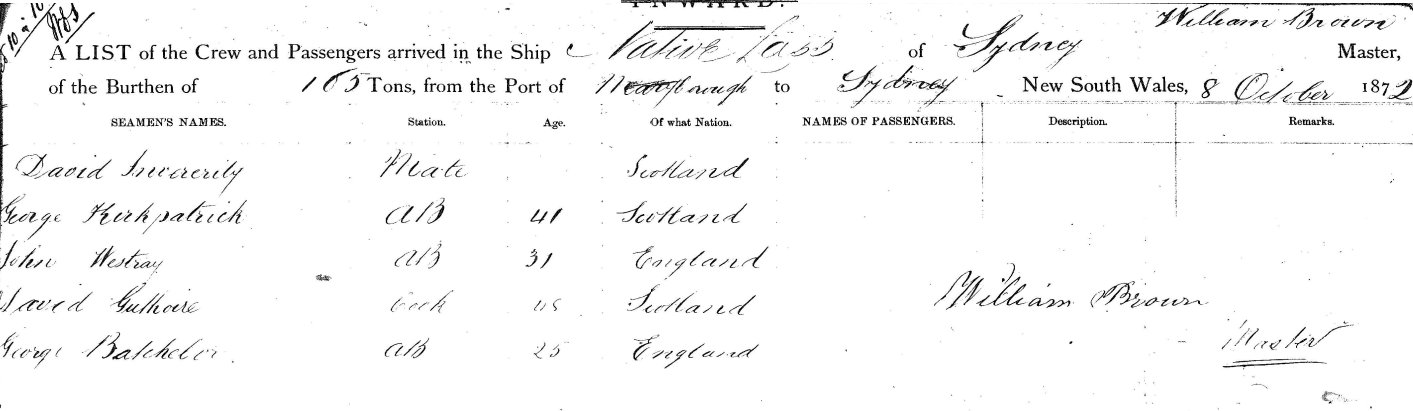 INWARD.
A LIST of the Crew and Passengers arrived in the Ship Native Lass of Sydney William Brown Master,
of the Burthen of 165 Tons, from the Port of to Sydney New South Wales, 8 October 1872
SEAMEN'S NAMES. Station. Age. Of what Nation. NAMES OF PASSENGERS. Description. Remarks.
David Inverarity Mate Scotland
George Kirkpatrick AB 41 Scotland
John Westray AB 31 England
David Guthrie Cook Scotland William Brown
George Batchelor AB 25 England Master